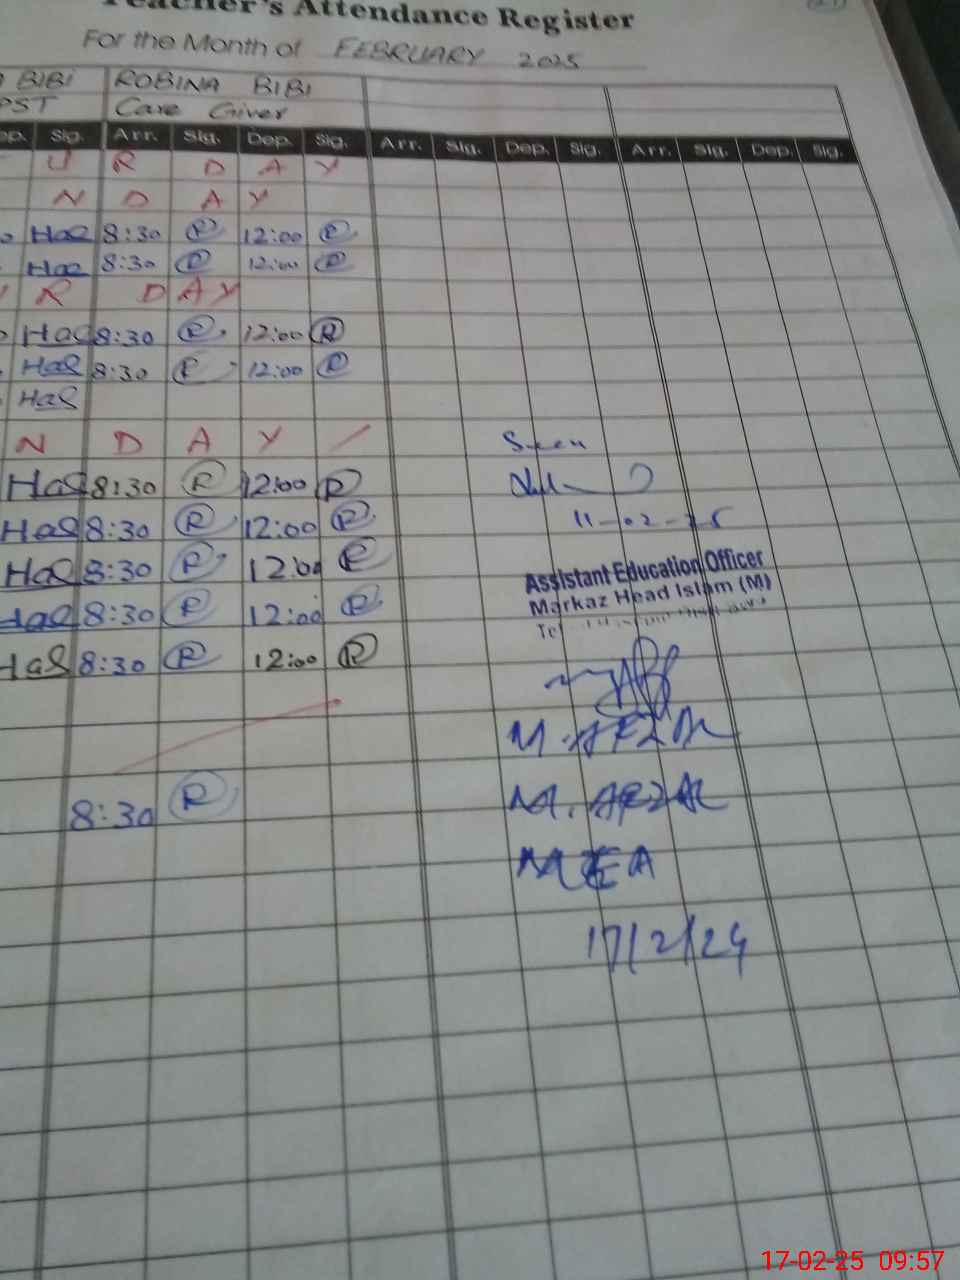 Teacher's Attendance Register
For the Month of FEBRUARY 2025
BIBI ROBINA BIBI
PST Care Giver
Sig. Arr. Sig. Dep. Sig. Arr. Sig. Dep. Sig. Arr. Sig. Dep. Sig.
U R D A Y
N D A Y
Haq 8:30 R 12:00 R
Haq 8:30 R 12:00 R
R D A Y
Haq 8:30 R 12:00 R
Haq 8:30 R 12:00 R
Haq
N D A Y
Seen
Haq 8:30 R 12:00 R
Haq 8:30 R 12:00 R
11-02-25
Haq 8:30 R 12:00 R
Assistant Education Officer
Haq 8:30 R 12:00 R
Markaz Head Islam (M)
Haq 8:30 R 12:00 R
M. AFZAL
8:30 R
M. AFZAL
MEA
17/2/24
17-02-25 09:57